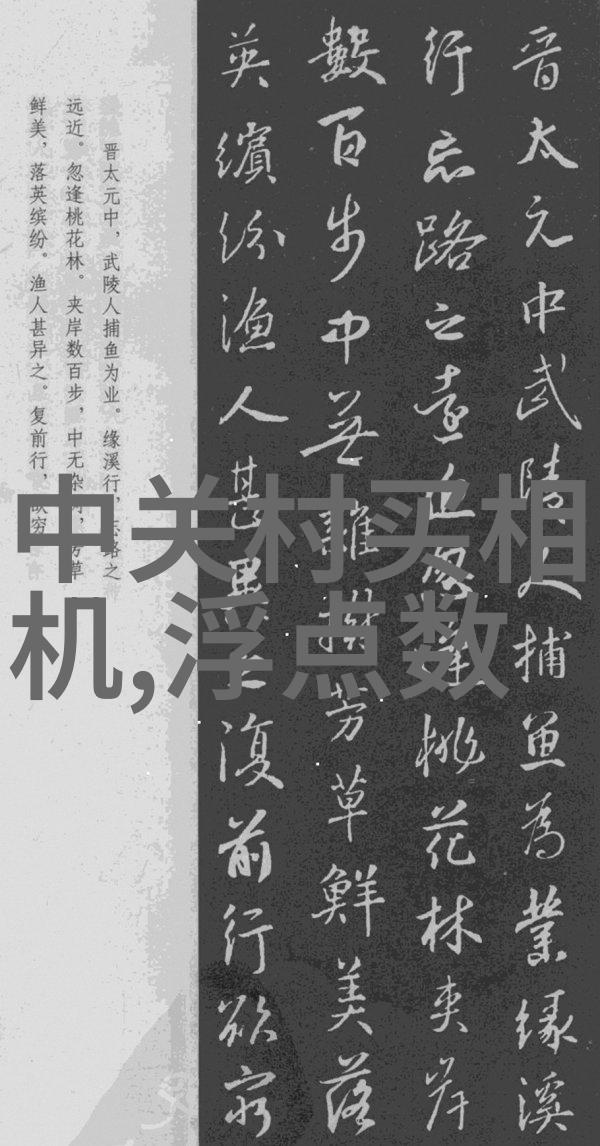 中关村买相
机,浮点数
晋太元中武陵人捕魚為業緣溪
行忘路之遠近忽逢桃花林夾岸
數百步中無雜樹芳草鮮美落
英繽紛漁人甚異之復前行欲窮
晋太元中，武陵人捕鱼为业。缘溪行，忘路之
远近。忽逢桃花林。夹岸数百步，中无杂树，芳草
鲜美，落英缤纷。渔人甚异之。复前行，欲穷